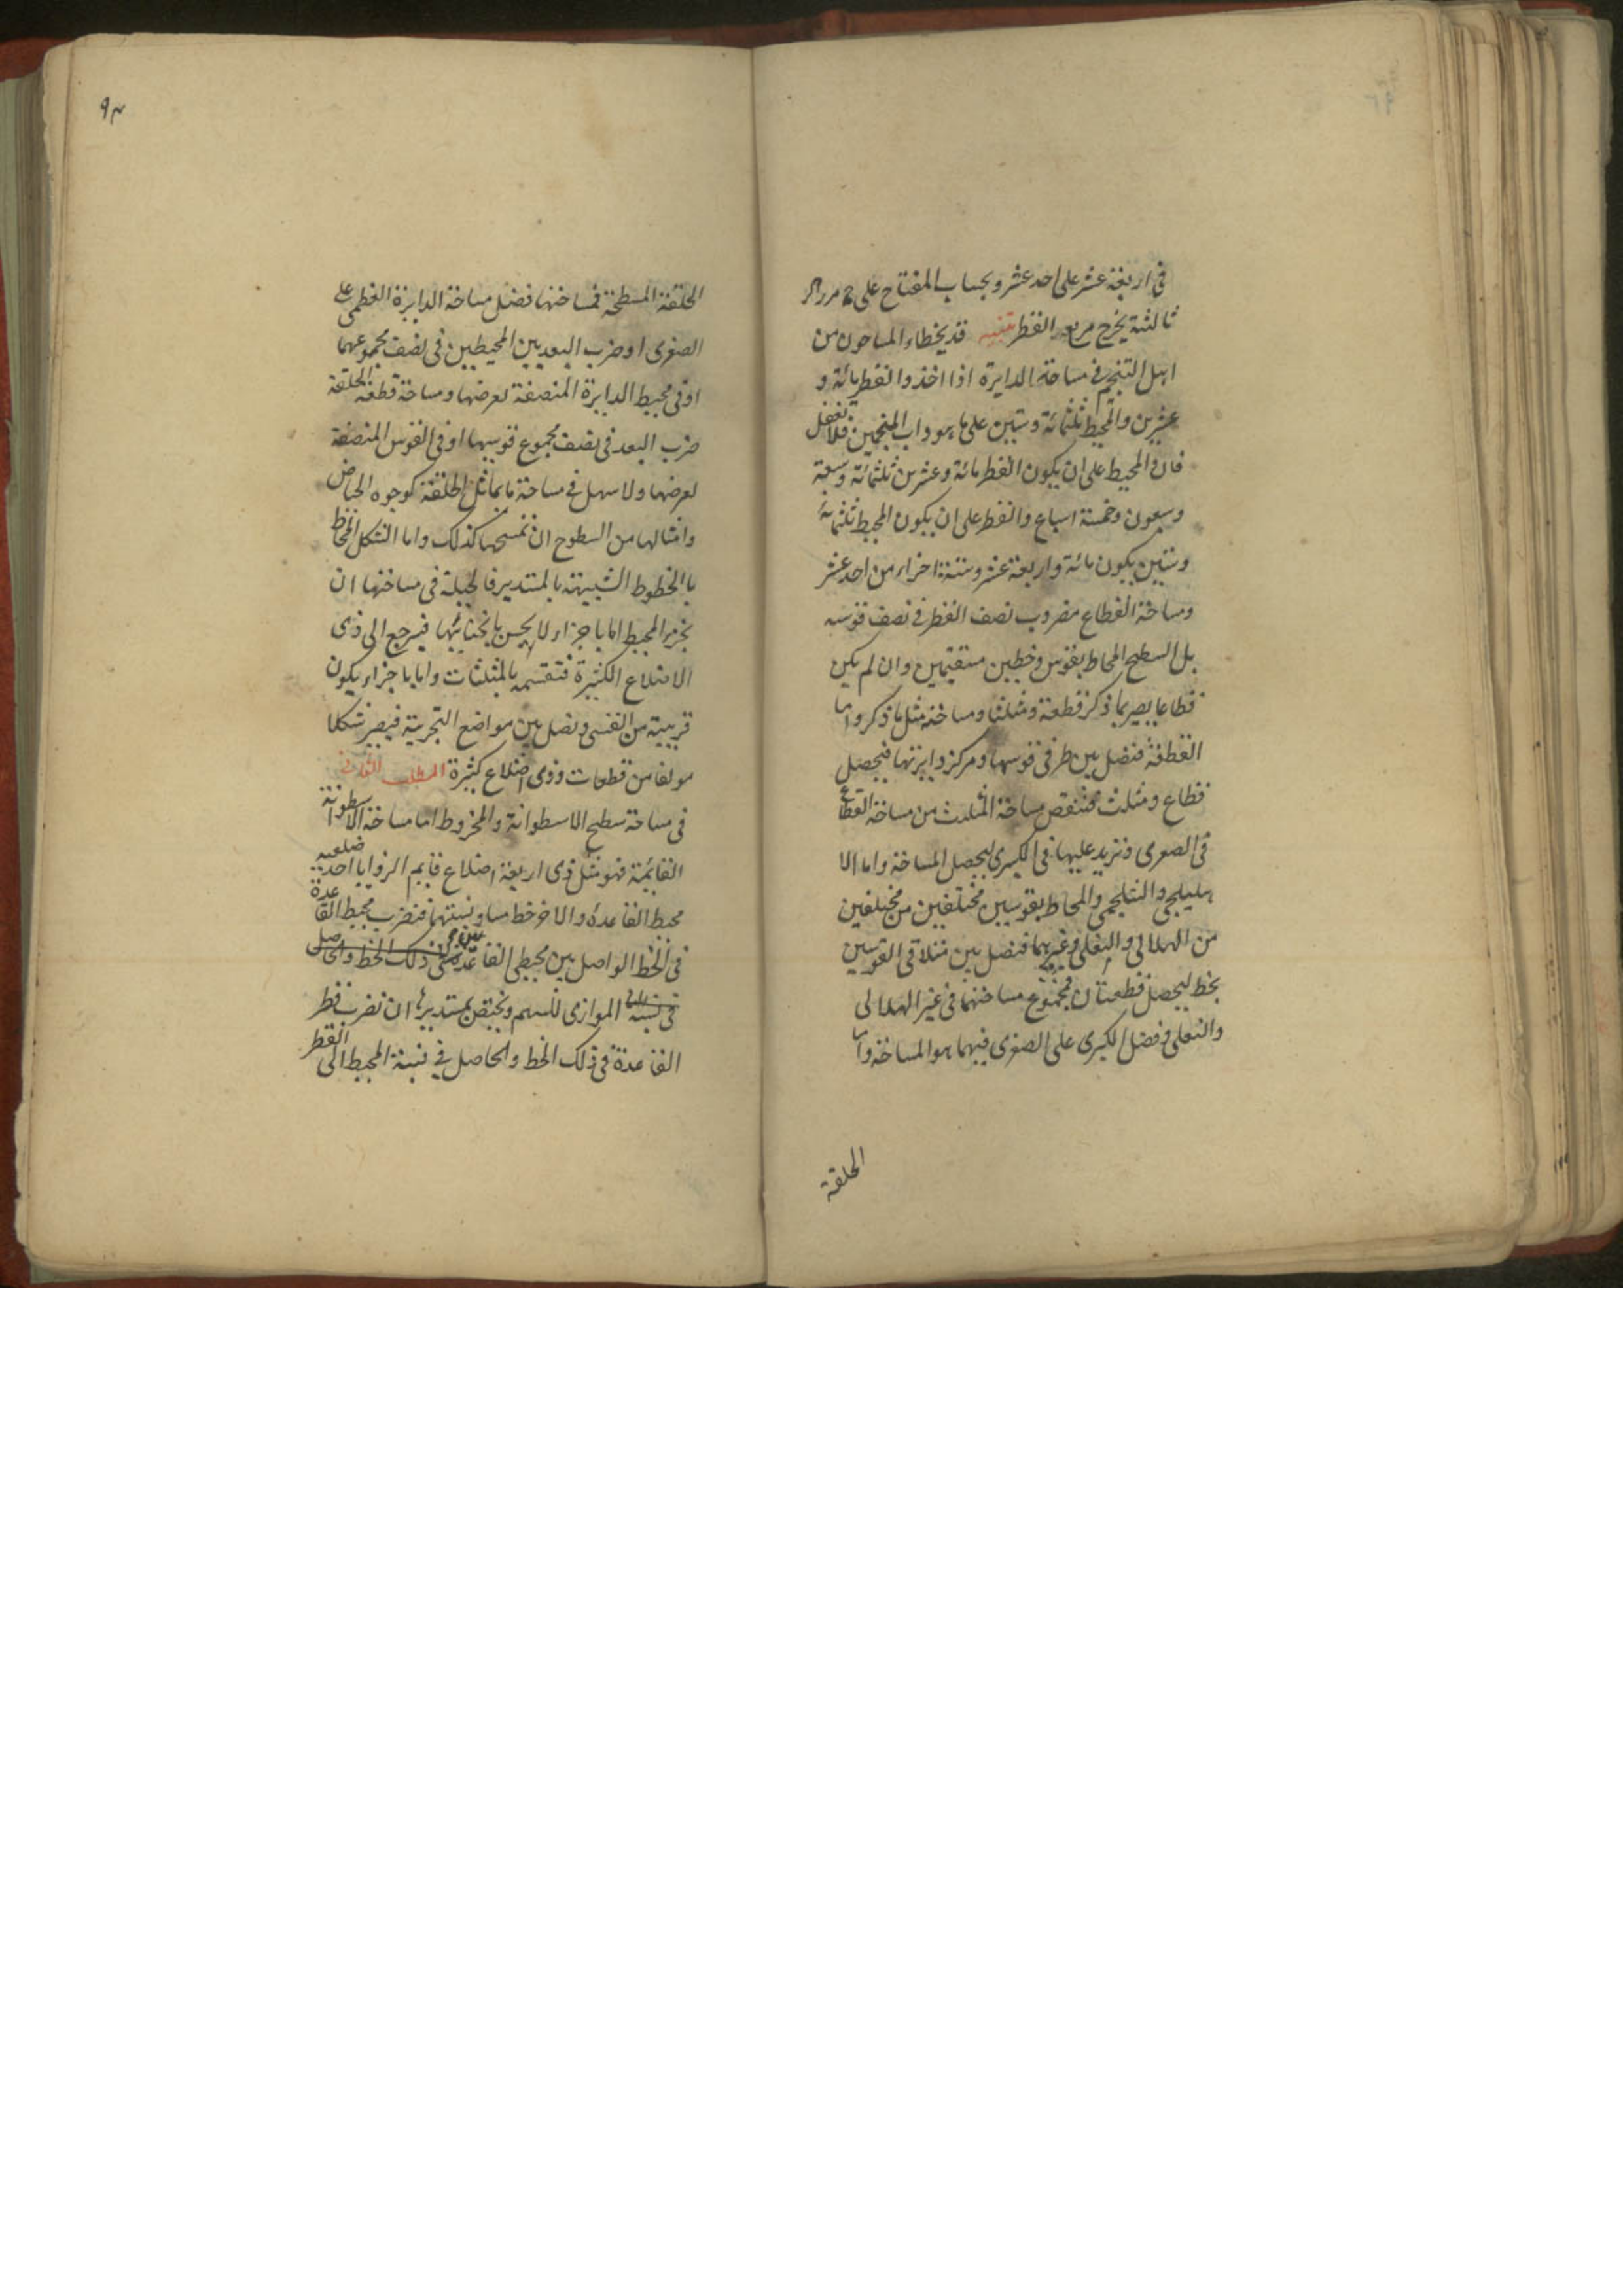 في اربعة عشر على احد عشر وبحساب المفتاح على
ثالثة يخرج مربع القطر تنبيه قد يخطاء المساحون من
اهل التنجيم في مساحة الدايرة اذا اخذوا القطر مائة و
عشرين والمحيط ثلثمائة وستين على ما هو داب المنجمين فلا تغفل
فان المحيط على ان يكون القطر مائة وعشرين ثلثمائة وسبعة
وسبعون وخمسة اسباع والقطر على ان يكون المحيط ثلثمائة
وستين يكون مائة واربعة عشر وستة اجزاء من احد عشر
ومساحة القطاع مضروب نصف القطر في نصف قوسه
بل السطح المحاط بقوس وخطين مستقيمين وان لم يكن
قطاعا يصير بما ذكر قطعة ومثلثا ومساحته مثل ما ذكر واما
القطعة فنصل بين طرفي قوسها ومركز دايرتها فيحصل
قطاع ومثلث فننقص مساحة المثلث من مساحة القطاع
في الصغرى ونزيد عليها في الكبرى ليحصل المساحة واما الا
هليلجي والشلجمي والمحاط بقوسين مختلفين من مختلفين
من الهلالي والنعلي وغيرهما فنصل بين متلاقي القوسين
بخط ليحصل قطعتان فمجموع مساحتهما في غير الهلالي
والنعلي وفضل الكبرى على الصغرى فيهما هو المساحة واما
الحلقة
٩٣
الحلقة المسطحة فمساحتها فضل مساحة الدايرة العظمى على
الصغرى او ضرب البعد بين المحيطين في نصف مجموعهما
او في محيط الدايرة المنصفة لعرضها ومساحة قطعة الحلقة
ضرب البعد في نصف مجموع قوسيها او في القوس المنصفة
لعرضها ولا سهل في مساحة ما يماثل الحلقة كوجوه الحياض
وامثالها من السطوح ان نمسحها كذلك واما الشكل المحاط
بالخطوط الشبيهة بالمستدير فالحيلة في مساحتها ان
نجزء المحيط اما باجزاء لا يحس بانحنائها فيرجع الى ذي
الاضلاع الكثيرة فنقسمه بالمثلثات واما باجزاء يكون
قريبة من القسي ونصل بين مواضع التجزية فيصير شكلا
مولفا من قطعات وذي اضلاع كثيرة المطلب الثاني
في مساحة سطح الاسطوانة والمخروط اما مساحة الاسطوانة
القائمة فهو مثل ذي اربعة اضلاع قايم الزوايا احد ضلعيه
محيط القاعدة والاخر خط مساو فنضرب محيط القاعدة
في الخط الواصل بين محيطي القاعدتين في ذلك الخط والحاصل
في نسبة الموازي للسهم ويختص بمستديرها ان نضرب قطر
القاعدة في ذلك الخط والحاصل في نسبة المحيط الى القطر